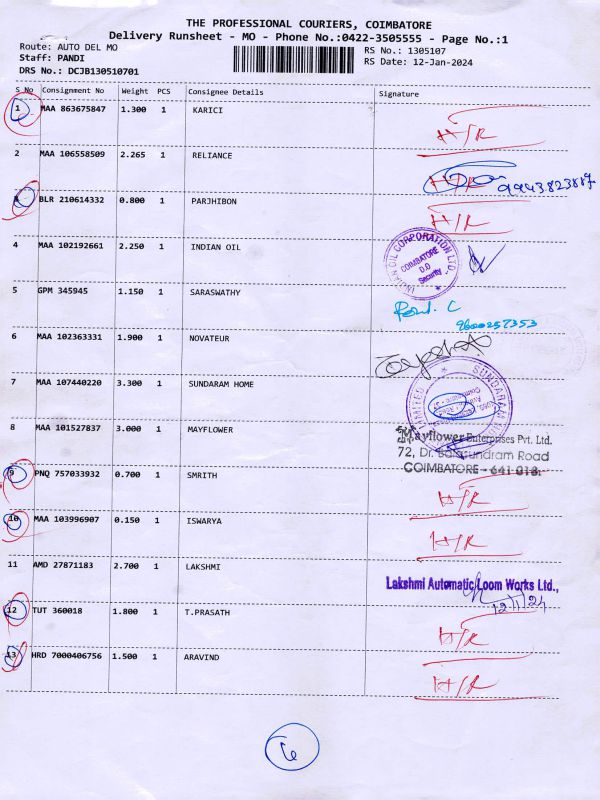 THE PROFESSIONAL COURIERS, COIMBATORE
Delivery Runsheet - MO - Phone No.:0422-3505555 - Page No.:1
Route: AUTO DEL MO
RS No.: 1305107
Staff: PANDI
RS Date: 12-Jan-2024
DRS No.: DCJB130510701
S No Consignment No Weight PCS Consignee Details Signature
1 MAA 863675847 1.300 1 KARICI H/R
2 MAA 106558509 2.265 1 RELIANCE H/R
3 BLR 210614332 0.800 1 PARJHIBON H/R
4 MAA 102192661 2.250 1 INDIAN OIL
INDIAN OIL CORPORATION LTD.
COIMBATORE
D.O
Security
5 GPM 345945 1.150 1 SARASWATHY
9600257353
6 MAA 102363331 1.900 1 NOVATEUR
7 MAA 107440220 3.300 1 SUNDARAM HOME
SUNDARAM
LIMITED
8 MAA 101527837 3.000 1 MAYFLOWER
Mayflower Enterprises Pvt. Ltd.
72, Dr. Balasundram Road
COIMBATORE - 641 018.
9 PNQ 757033932 0.700 1 SMRITH H/R
10 MAA 103996907 0.150 1 ISWARYA H/R
11 AMD 27871183 2.700 1 LAKSHMI
Lakshmi Automatic Loom Works Ltd.,
12/1/24
12 TUT 360018 1.800 1 T.PRASATH H/R
13 HRD 7000406756 1.500 1 ARAVIND H/R